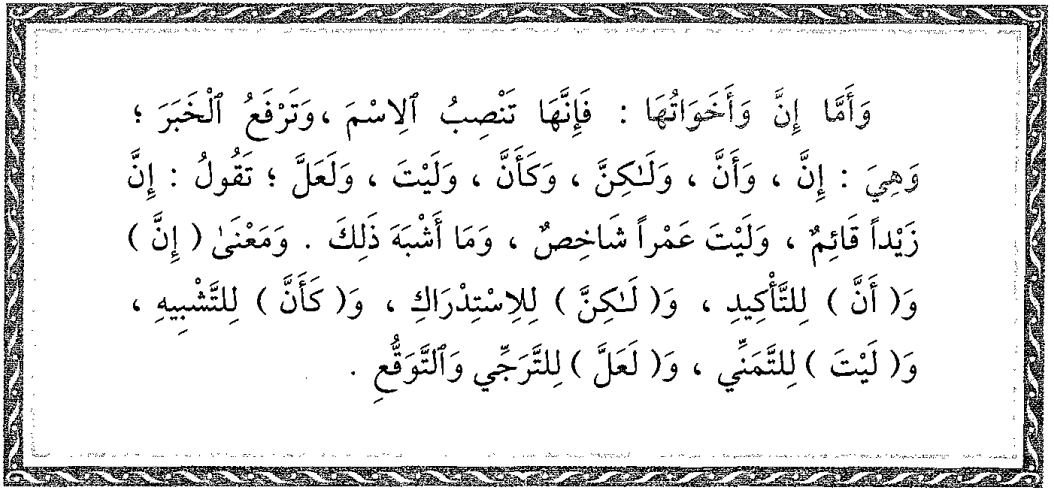 وَأَمَّا إِنَّ وَأَخَوَاتُهَا : فَإِنَّهَا تَنْصِبُ ٱلِاسْمَ ، وَتَرْفَعُ ٱلْخَبَرَ ؛
وَهِيَ : إِنَّ ، وَأَنَّ ، وَلَـٰكِنَّ ، وَكَأَنَّ ، وَلَيْتَ ، وَلَعَلَّ ؛ تَقُولُ : إِنَّ
زَيْداً قَائِمٌ ، وَلَيْتَ عَمْراً شَاخِصٌ ، وَمَا أَشْبَهَ ذَلِكَ . وَمَعْنَىٰ ( إِنَّ )
وَ( أَنَّ ) لِلتَّأْكِيدِ ، وَ( لَـٰكِنَّ ) لِلِاسْتِدْرَاكِ ، وَ( كَأَنَّ ) لِلتَّشْبِيهِ ،
وَ( لَيْتَ ) لِلتَّمَنِّي ، وَ( لَعَلَّ ) لِلتَّرَجِّي وَٱلتَّوَقُّعِ .